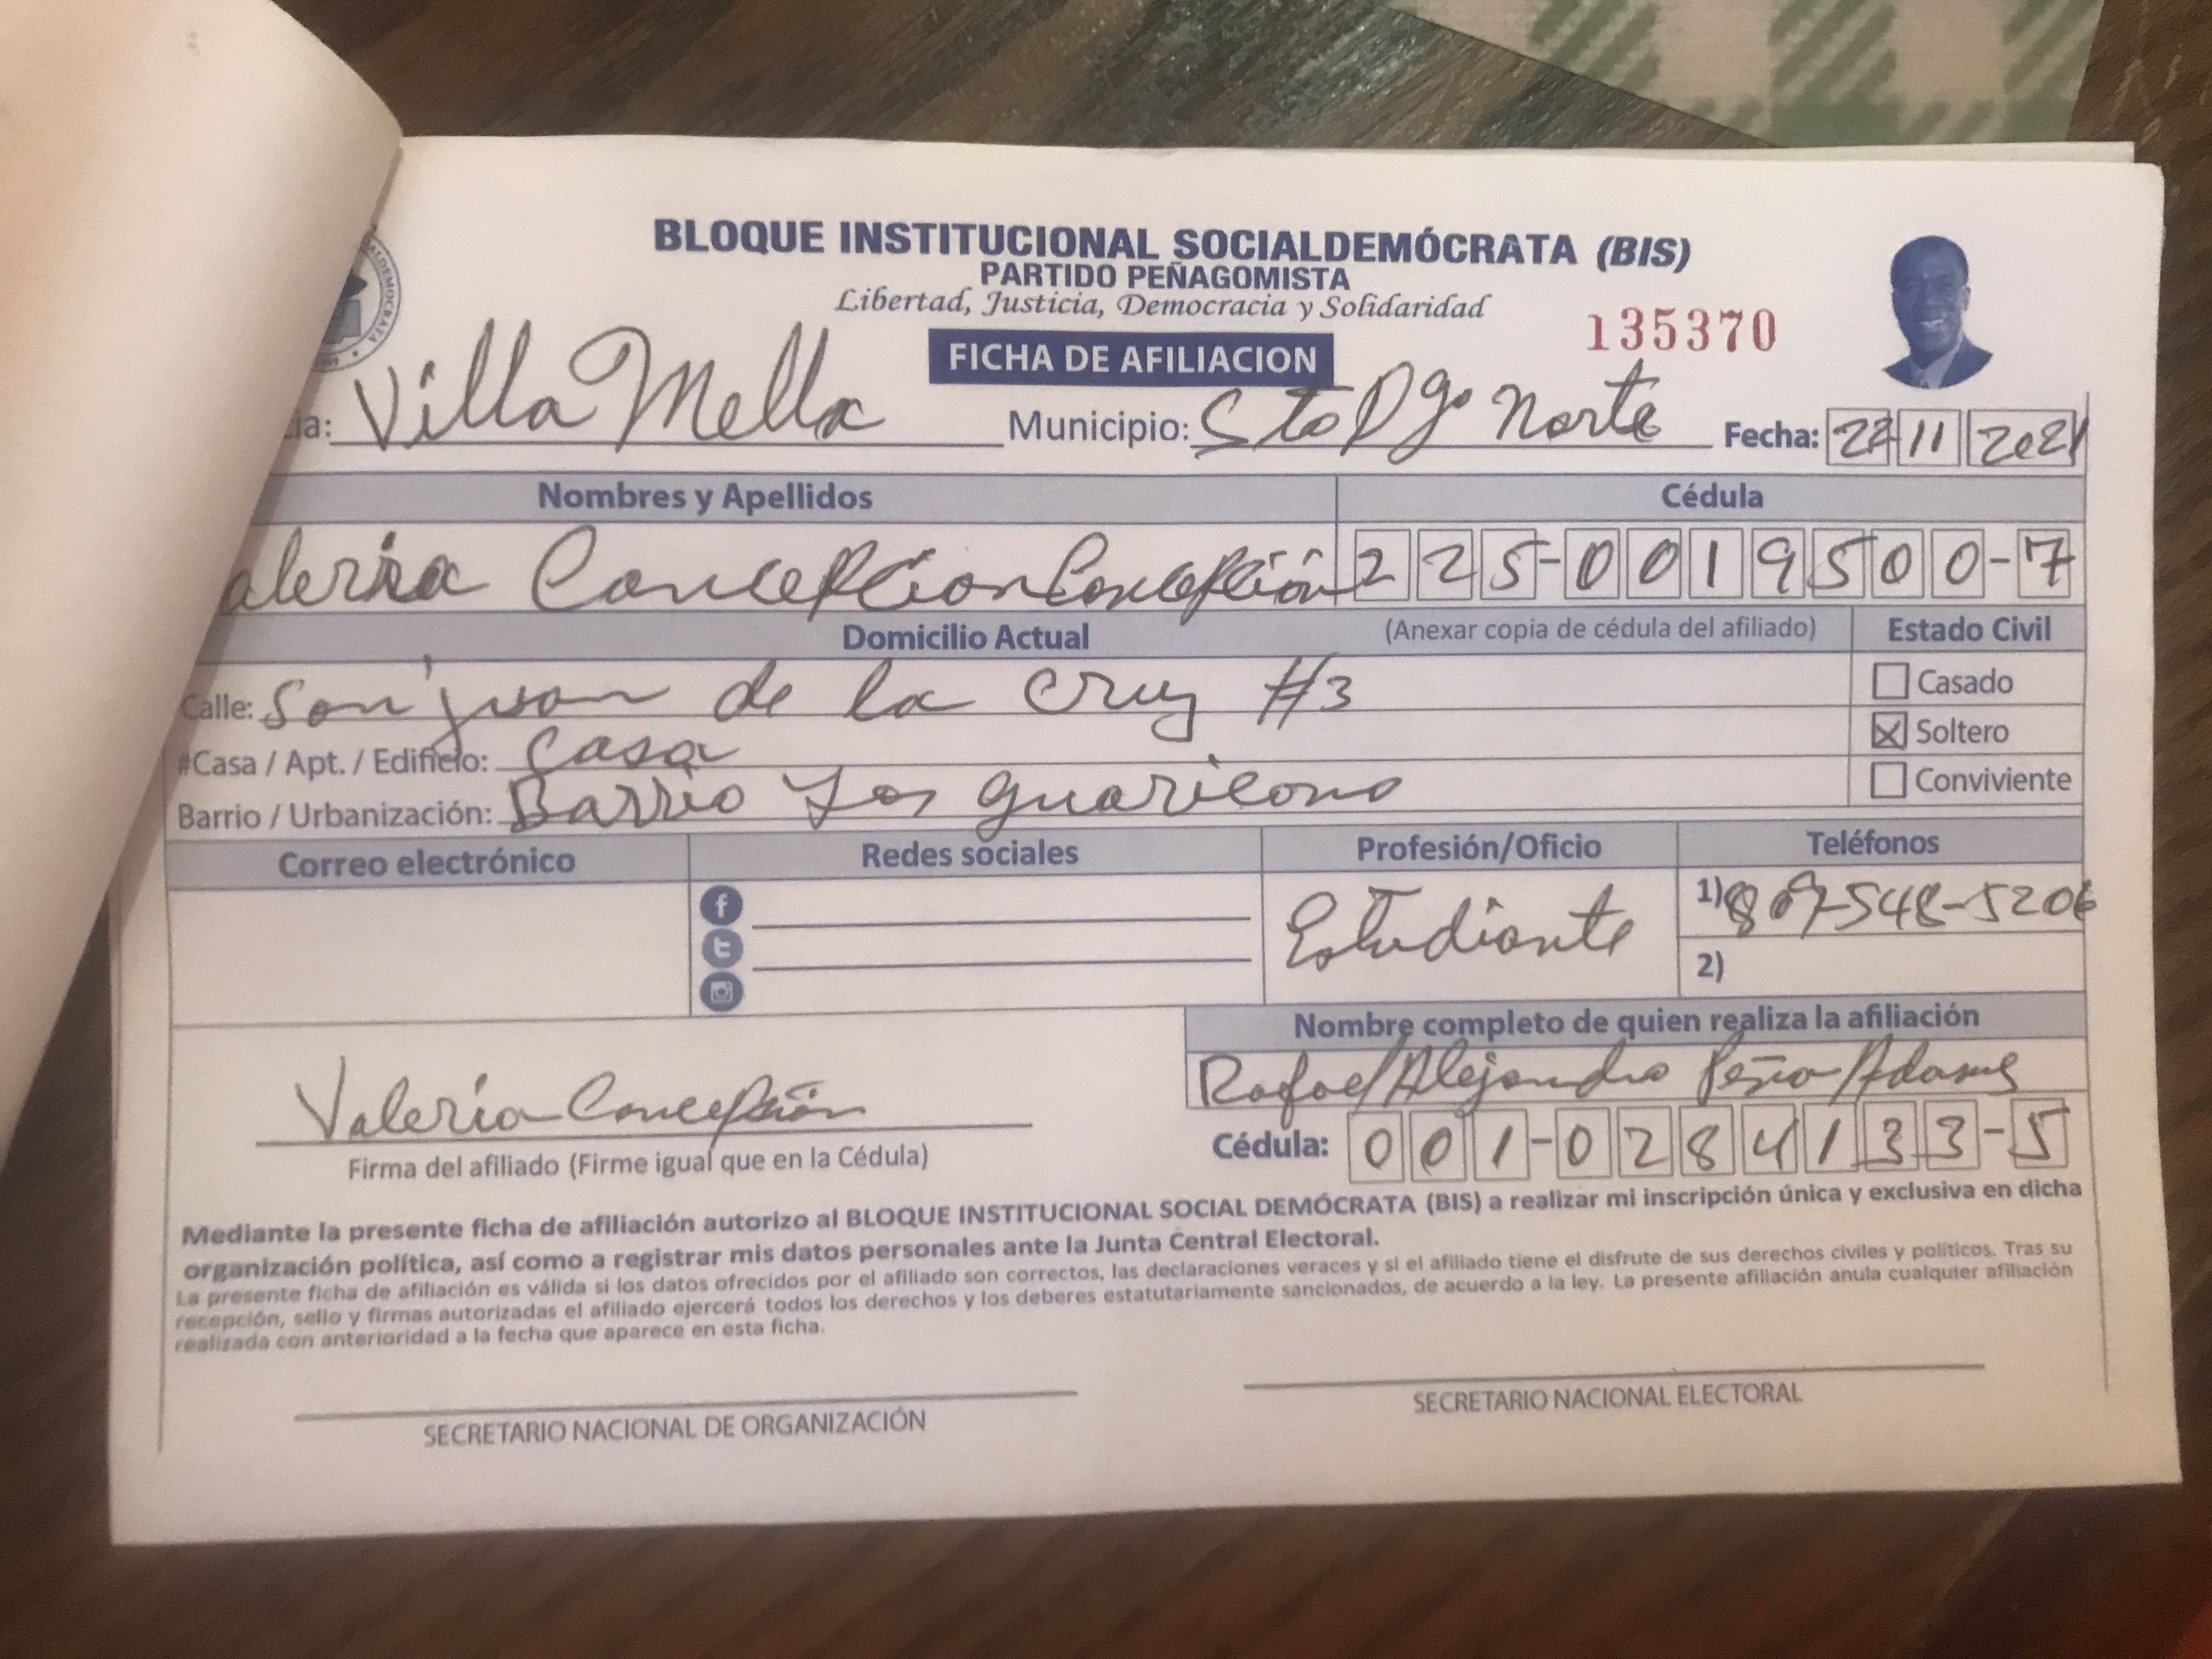 BLOQUE INSTITUCIONAL SOCIALDEMÓCRATA (BIS)
PARTIDO PEÑAGOMISTA
Libertad, Justicia, Democracia y Solidaridad
135370
FICHA DE AFILIACION
ia: Villa Mella Municipio: Sto Dgo Norte Fecha: 22 11 2021
Nombres y Apellidos Cédula
aleria Concepcion Concepción 225-0019500-7
Domicilio Actual (Anexar copia de cédula del afiliado) Estado Civil
Calle: San juan de la Cruz #3 Casado
#Casa / Apt. / Edificio: Casa Soltero
Barrio / Urbanización: Barrio Los guaricano Conviviente
Correo electrónico Redes sociales Profesión/Oficio Teléfonos
Estudiante 1) 809-548-5206
2)
Nombre completo de quien realiza la afiliación
Rafael Alejandro Peña Adames
Valeria Concepción Cédula: 001-0284133-5
Firma del afiliado (Firme igual que en la Cédula)
Mediante la presente ficha de afiliación autorizo al BLOQUE INSTITUCIONAL SOCIAL DEMÓCRATA (BIS) a realizar mi inscripción única y exclusiva en dicha
organización política, así como a registrar mis datos personales ante la Junta Central Electoral.
La presente ficha de afiliación es válida si los datos ofrecidos por el afiliado son correctos, las declaraciones veraces y si el afiliado tiene el disfrute de sus derechos civiles y políticos. Tras su
recepción, sello y firmas autorizadas el afiliado ejercerá todos los derechos y los deberes estatutariamente sancionados, de acuerdo a la ley. La presente afiliación anula cualquier afiliación
realizada con anterioridad a la fecha que aparece en esta ficha.
SECRETARIO NACIONAL DE ORGANIZACIÓN SECRETARIO NACIONAL ELECTORAL